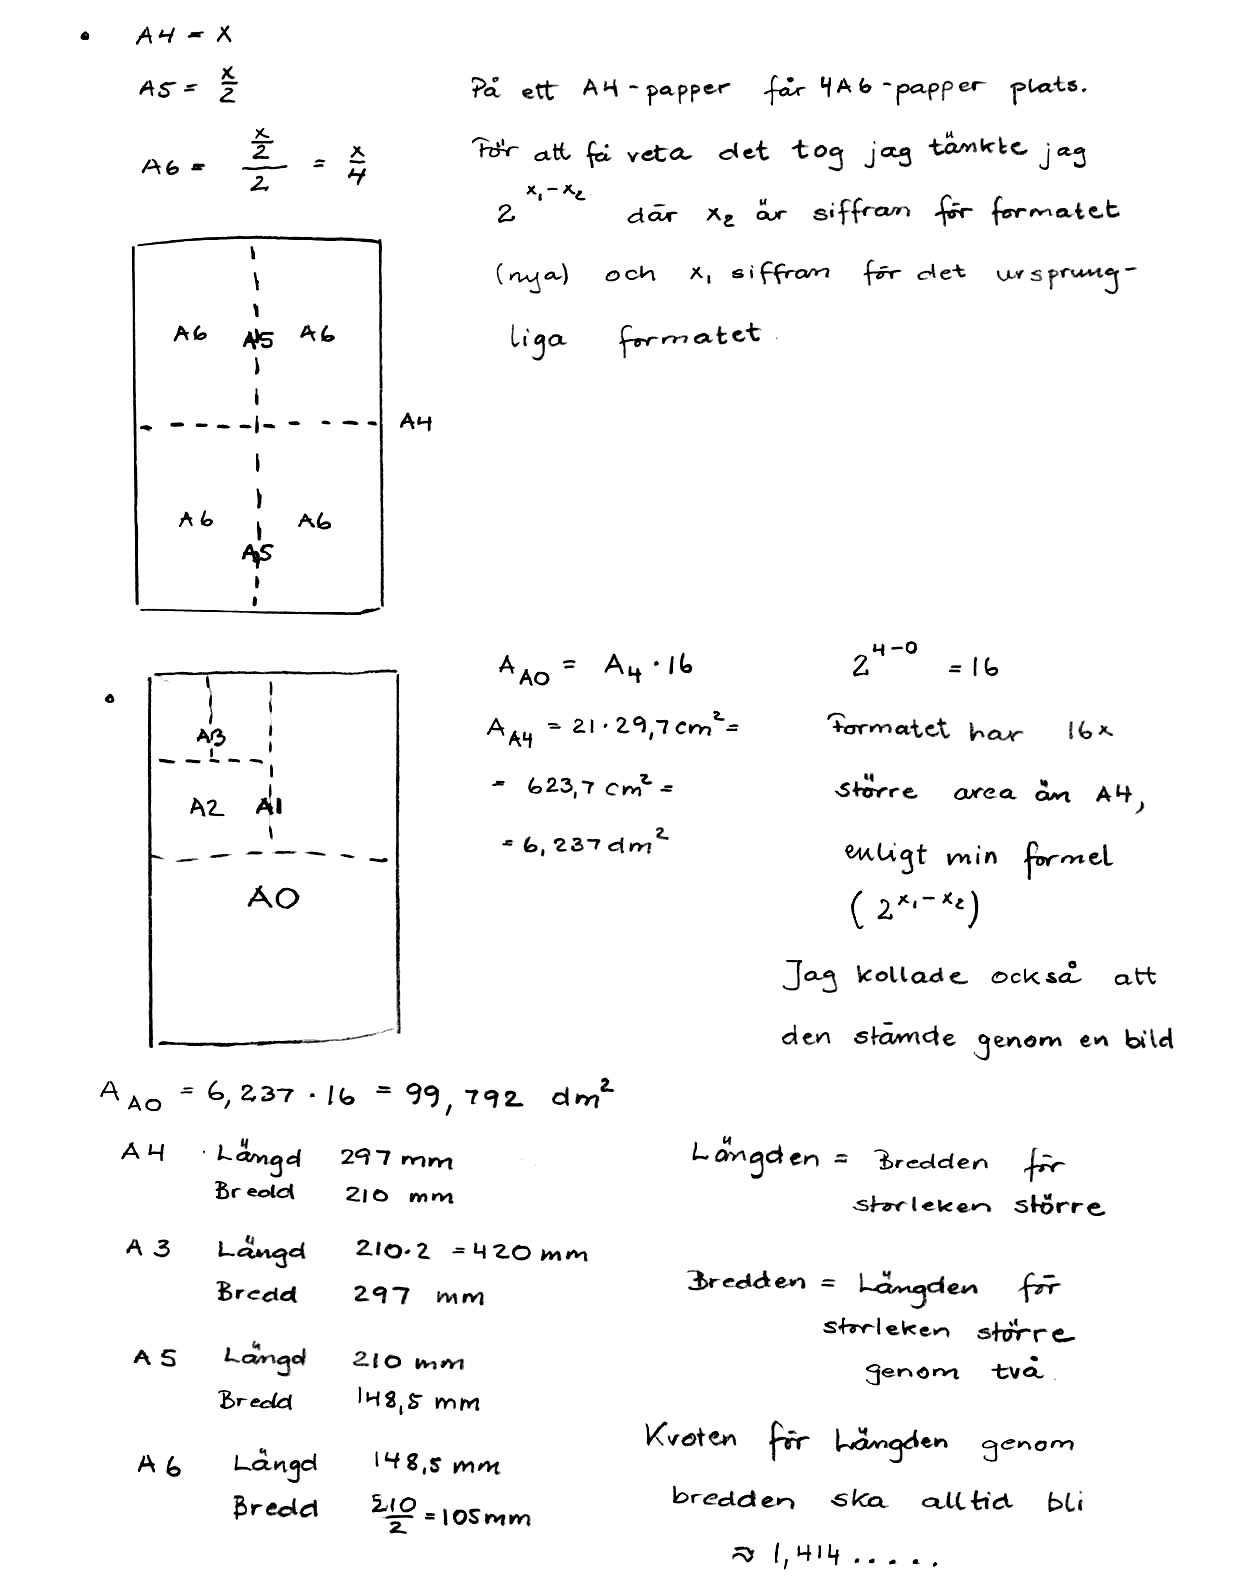 • A4 = x
A5 = x/2
A6 = (x/2)/2 = x/4
På ett A4-papper får 4A6-papper plats.
För att få veta det tog jag tänkte jag
2^(x₁-x₂) där x₂ är siffran för formatet
(nya) och x₁ siffran för det ursprung-
liga formatet.
A6 A5 A6
A4
A6 A6
A5
•
A3
A2 A1
A0
A_A0 = A_4 · 16
A_A4 = 21 · 29,7 cm² =
= 623,7 cm² =
= 6,237 dm²
2^(4-0) = 16
Formatet har 16x
större area än A4,
enligt min formel
(2^(x₁-x₂))
Jag kollade också att
den stämde genom en bild
A_A0 = 6,237 · 16 = 99,792 dm²
A4 Längd 297 mm
Bredd 210 mm
A3 Längd 210·2 = 420 mm
Bredd 297 mm
A5 Längd 210 mm
Bredd 148,5 mm
A6 Längd 148,5 mm
Bredd 210/2 = 105 mm
Längden = Bredden för
storleken större
Bredden = Längden för
storleken större
genom två.
Kvoten för längden genom
bredden ska alltid bli
≈ 1,414.....